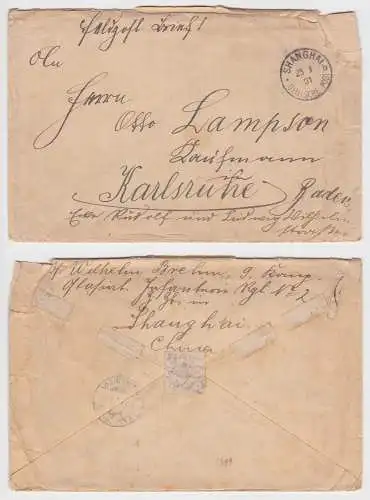 Feldpost Brief!
SHANGHAI
25 1
01
An
Herrn
Otto Lampson
Kaufmann
in
Karlsruhe Baden
Ecke Rudolf und Ludwig Wilhelm
strasse
Wilhelm Brehm, 9. Komp.
Ostasiat. Infanterie Rgt. No 2
in
Shanghai
China